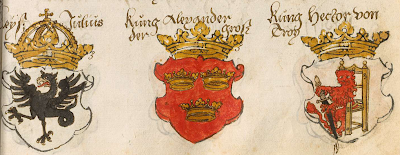 Julius
Küng Alexander
der groß
Küng Hector von
Troy